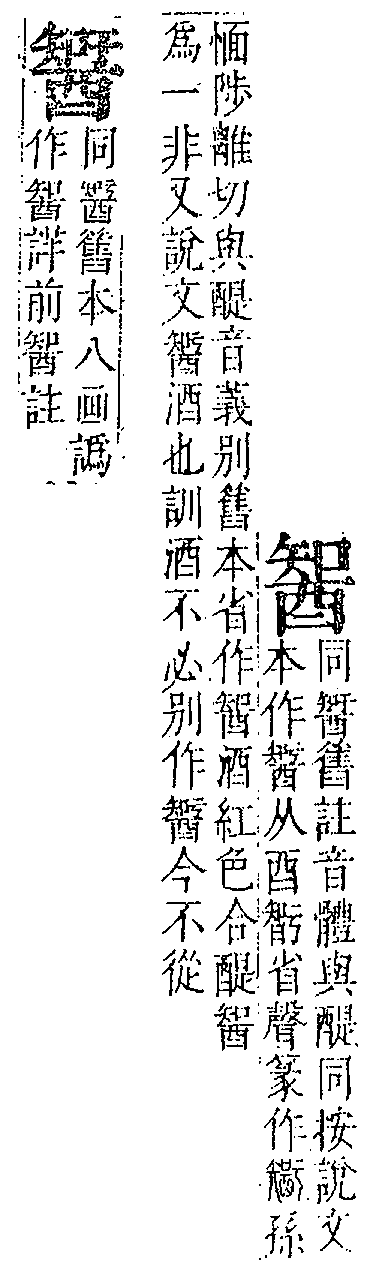 同舊註音體與醍同按說文
本作从酉省聲篆作孫
愐陟離切與醍音義別舊本省作酒紅色合醍
為一非又說文酒也訓酒不必別作今不從
同舊本八画譌
作詳前註